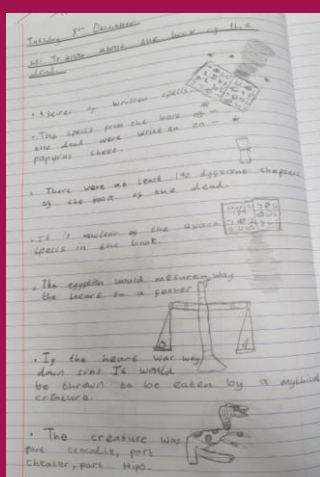 Tuesday 8th December
LI: To write about the book of the
dead.
• A series of written spells.
• The spells from the book of
the dead were written on
papyrus sheet.
• There were at least 190 different chapters
of the book of the dead.
• It's number of the exact
spells in the book
• The egyptian would mesuren way
the heart to a fether
• If the heart war way
down sins It would
be thrown to be eaten by a mythical
creature.
• The creature was
part crocadile, port
cheater, part Hipo.